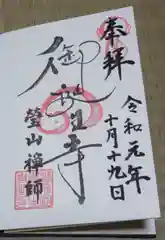 奉拝
令和元年
十月十九日
御誕生寺
瑩山禪師